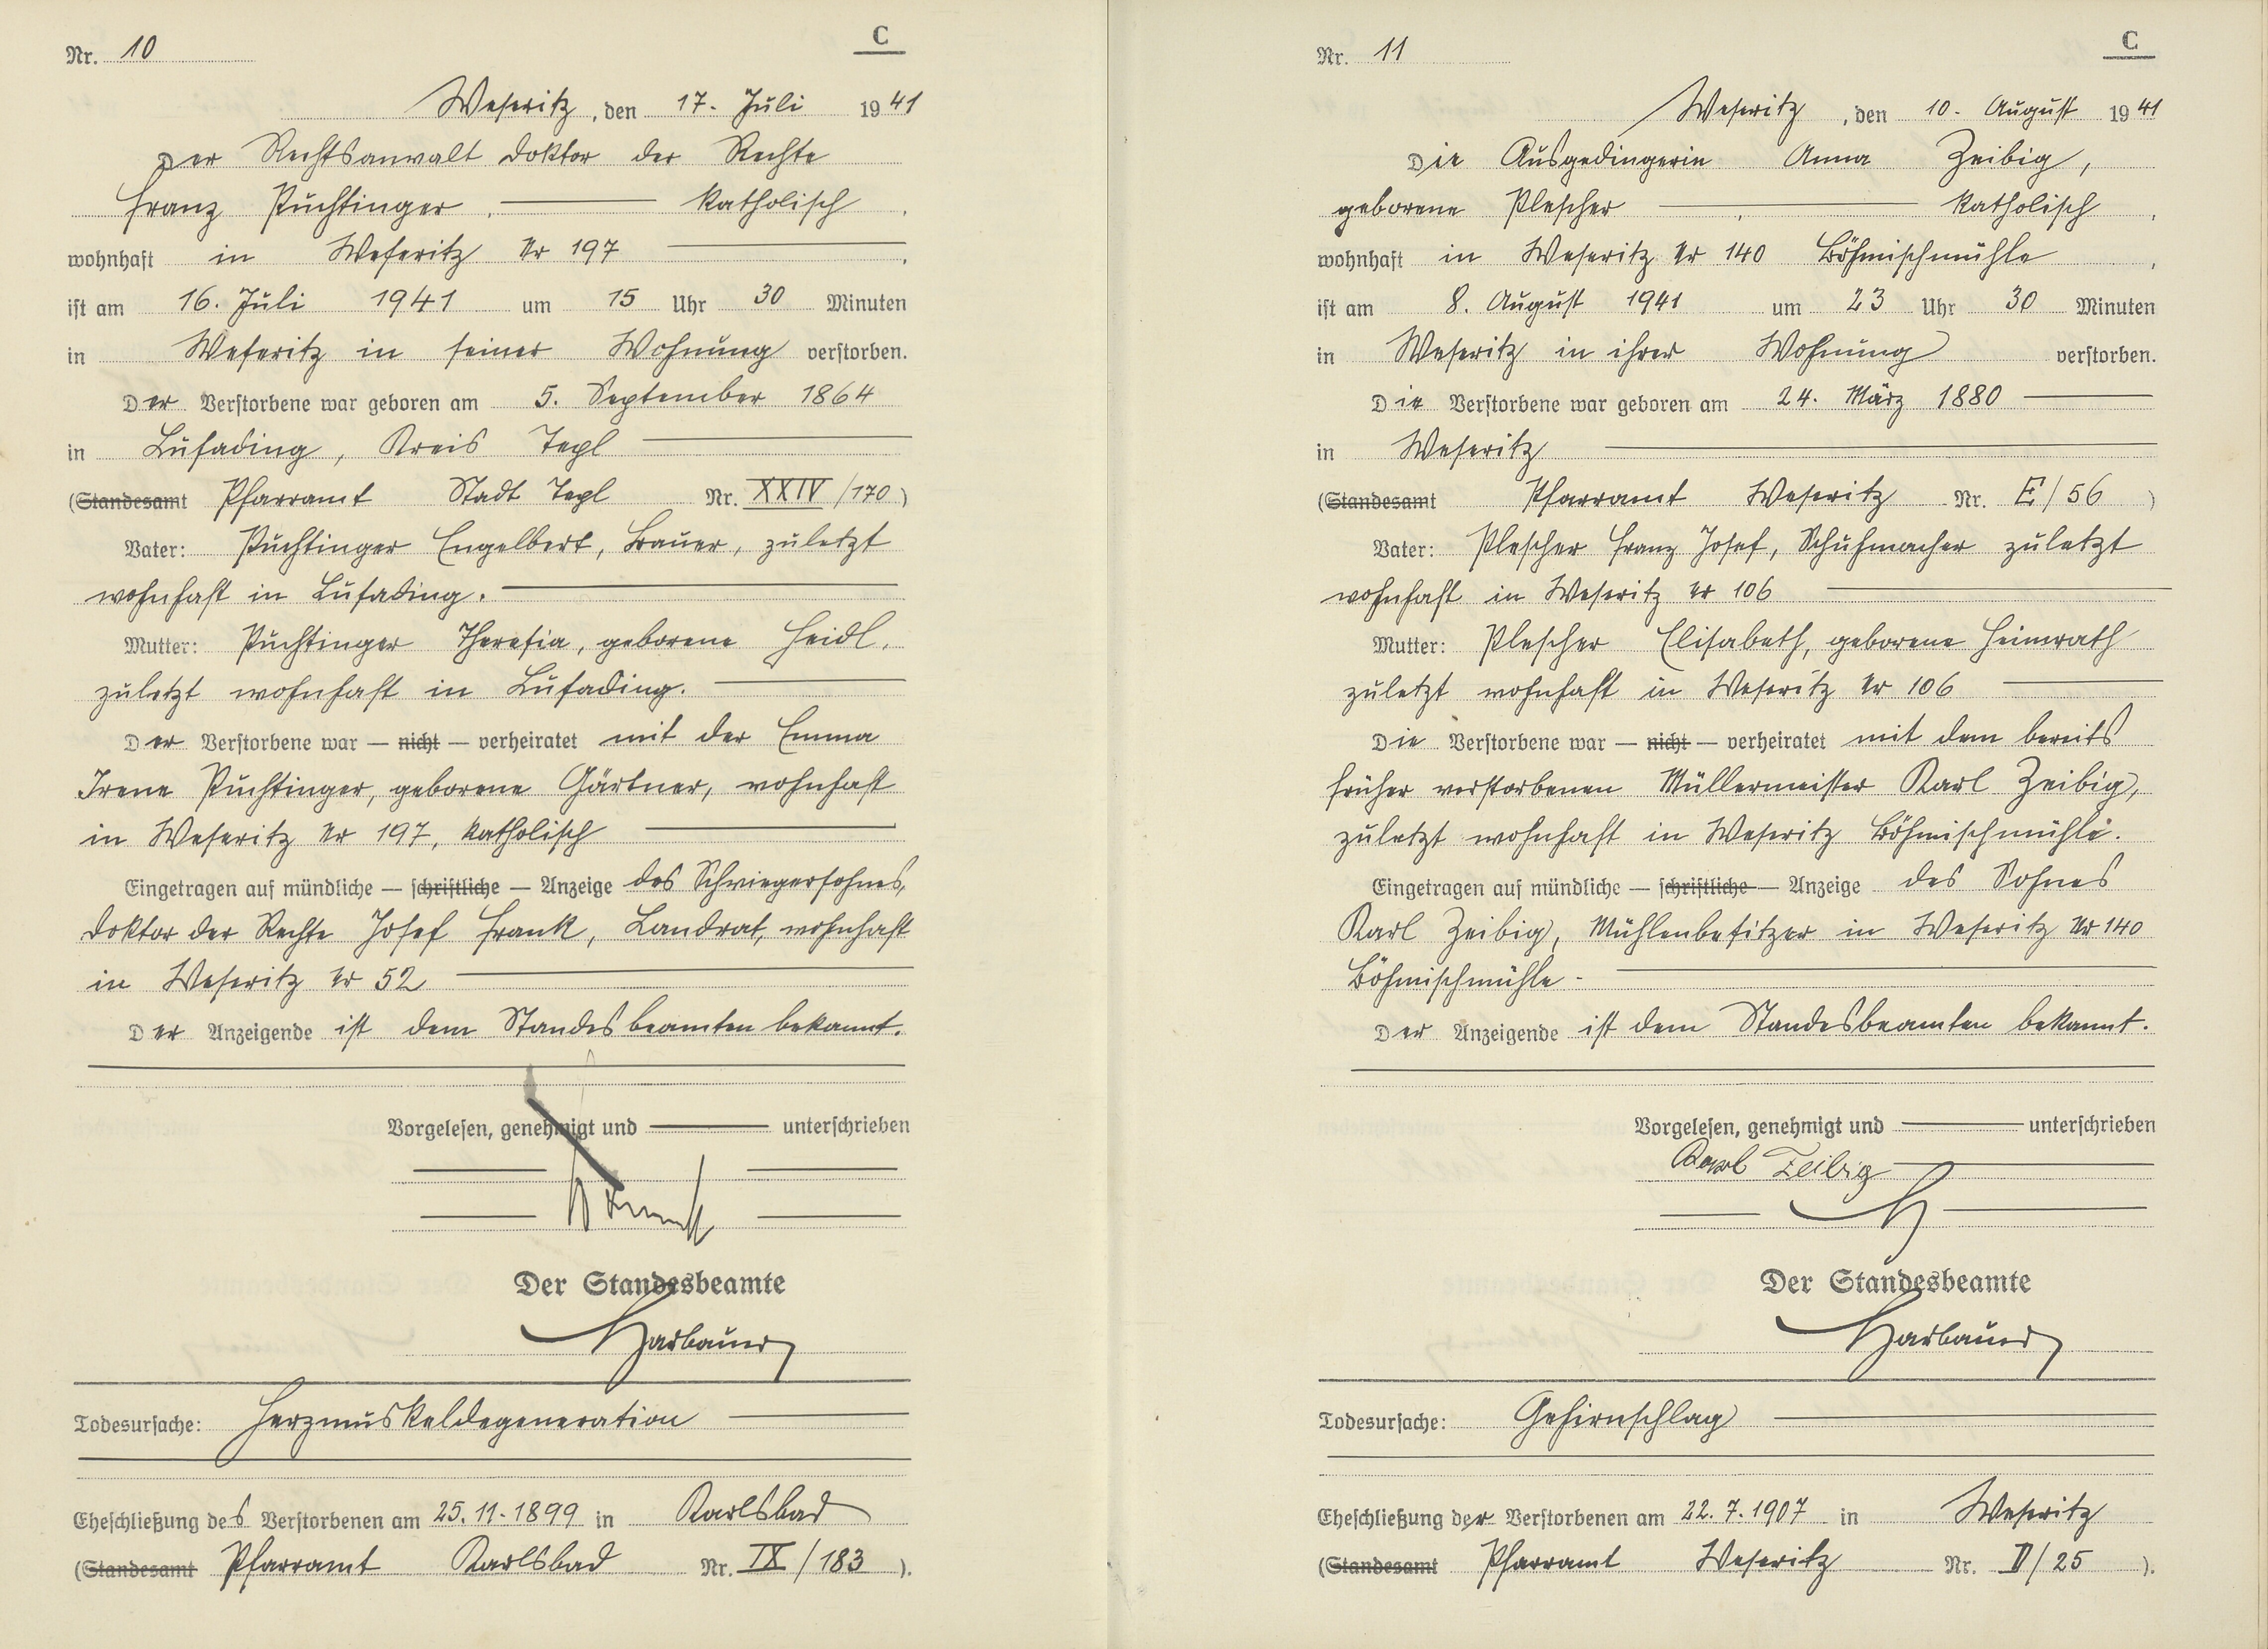 Nr. 10
C
Weseritz, den 17. Juli 1941
Der Rechtsanwalt Doktor der Rechte
Franz Puchtinger, katholisch,
wohnhaft in Weseritz Nr 197,
ist am 16. Juli 1941 um 15 Uhr 30 Minuten
in Weseritz in seiner Wohnung verstorben.
Der Verstorbene war geboren am 5. September 1864
in Lusading, Kreis Tepl
(Standesamt Pfarramt Stadt Tepl Nr. XXIV/170)
Vater: Puchtinger Engelbert, Bauer, zuletzt
wohnhaft in Lusading.
Mutter: Puchtinger Theresia, geborene Heidl,
zuletzt wohnhaft in Lusading.
Der Verstorbene war — nicht — verheiratet mit der Emma
Irene Puchtinger, geborene Gärtner, wohnhaft
in Weseritz Nr 197, katholisch
Eingetragen auf mündliche — schriftliche — Anzeige des Schwiegersohnes,
Doktor der Rechte Josef Frank, Landrat, wohnhaft
in Weseritz Nr 52
Der Anzeigende ist dem Standesbeamten bekannt.
Vorgelesen, genehmigt und unterschrieben
Der Standesbeamte
Harbauer
Todesursache: Herzmuskeldegeneration
Eheschließung des Verstorbenen am 25.11.1899 in Karlsbad
(Standesamt Pfarramt Karlsbad Nr. IX/183).
Nr. 11
C
Weseritz, den 10. August 1941
Die Ausgedingerin Anna Zeibig,
geborene Plescher, katholisch,
wohnhaft in Weseritz Nr 140 Böhmischmühle,
ist am 8. August 1941 um 23 Uhr 30 Minuten
in Weseritz in ihrer Wohnung verstorben.
Die Verstorbene war geboren am 24. März 1880
in Weseritz
(Standesamt Pfarramt Weseritz Nr. E/56)
Vater: Plescher Franz Josef, Schuhmacher zuletzt
wohnhaft in Weseritz Nr 106
Mutter: Plescher Elisabeth, geborene Heimrath
zuletzt wohnhaft in Weseritz Nr 106
Die Verstorbene war — nicht — verheiratet mit dem bereits
früher verstorbenen Müllermeister Karl Zeibig,
zuletzt wohnhaft in Weseritz Böhmischmühle.
Eingetragen auf mündliche — schriftliche — Anzeige des Sohnes
Karl Zeibig, Mühlenbesitzer in Weseritz Nr 140
Böhmischmühle -
Der Anzeigende ist dem Standesbeamten bekannt.
Vorgelesen, genehmigt und unterschrieben
Karl Zeibig
Der Standesbeamte
Harbauer
Todesursache: Gehirnschlag
Eheschließung der Verstorbenen am 22.7.1907 in Weseritz
(Standesamt Pfarramt Weseritz Nr. D/25).